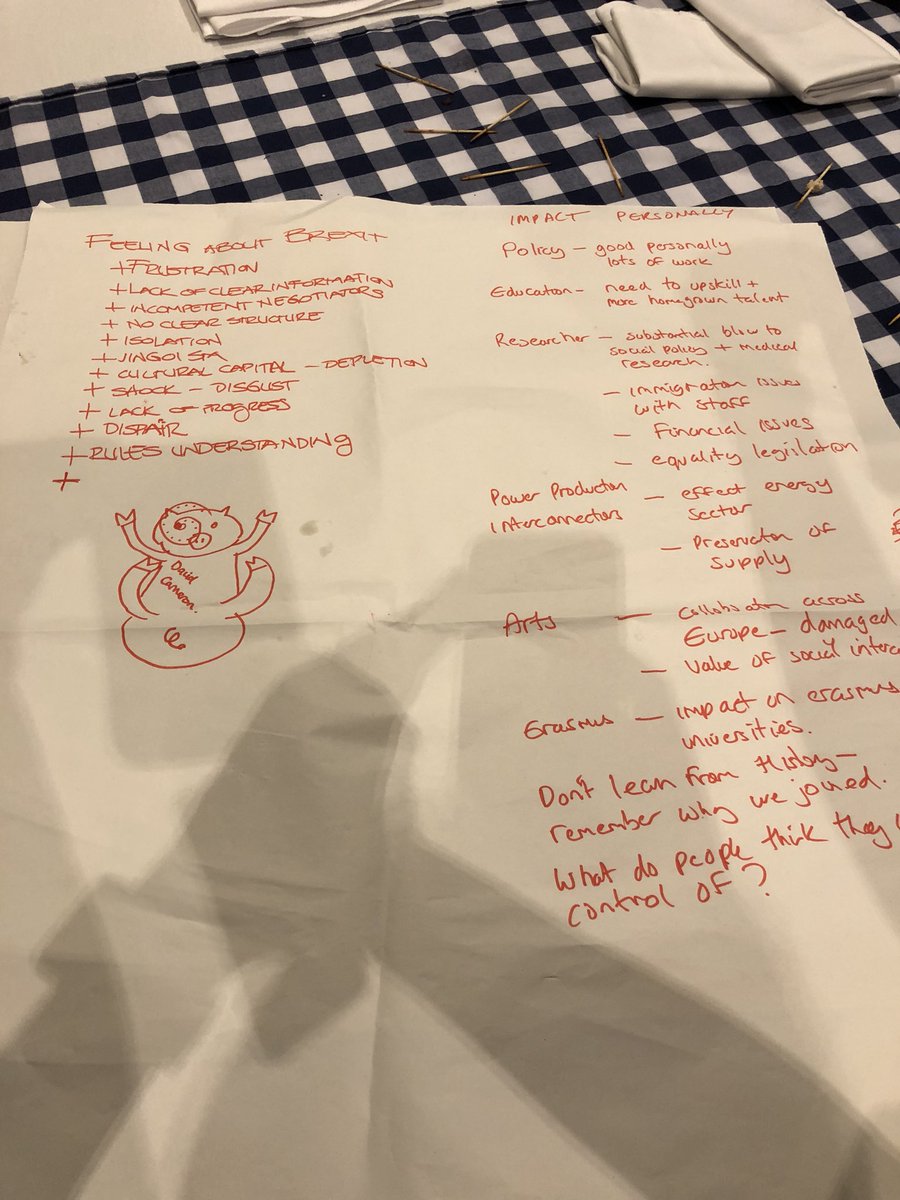 FEELING ABOUT BREXIT
+ FRUSTRATION
+ LACK OF CLEAR INFORMATION
+ INCOMPETENT NEGOTIATORS
+ NO CLEAR STRUCTURE
+ ISOLATION
+ JINGOISTA
+ CULTURAL CAPITAL – DEPLETION
+ SHOCK – DISGUST
+ LACK OF PROGRESS
+ DISPAIR
+ RULES UNDERSTANDING
+
David
Cameron.
IMPACT PERSONALLY
Policy – good personally
lots of work
Education – need to upskill +
more homegrown talent
Researcher – substantial blow to
social policy + medical
research.
– immigration issues
with staff
– Financial issues
– equality legislation
Power Production
Interconnectors – effect energy
sector
– Preservation of
supply
Arts – Collaboration across
Europe – damaged
– Value of social
Erasmus – impact on erasmus
universities.
Don't learn from History –
remember why we joined.
What do people think they
control of?